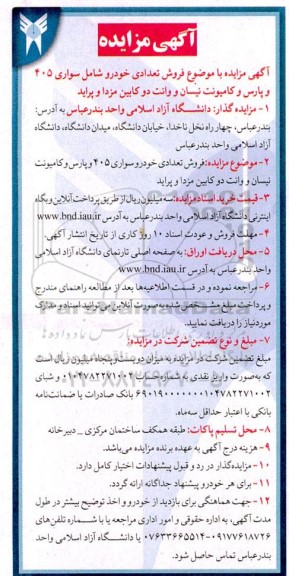 آگهی مزایده
آگهی مزایده با موضوع فروش تعدادی خودرو شامل سواری ۴۰۵
و پارس و کامیونت نیسان و وانت دو کابین مزدا و پراید
۱- مزایده گذار: دانشگاه آزاد اسلامی واحد بندرعباس به آدرس:
بندرعباس، چهار راه نخل ناخدا، خیابان دانشگاه، میدان دانشگاه، دانشگاه
آزاد اسلامی واحد بندرعباس
۲- موضوع مزایده: فروش تعدادی خودرو سواری ۴۰۵ و پارس و کامیونت
نیسان و وانت دو کابین مزدا و پراید
۳- قیمت خرید اسناد مزایده: سه میلیون ریال از طریق پرداخت آنلاین وبگاه
اینترنتی دانشگاه آزاد اسلامی واحد بندرعباس به آدرس www.bnd.iau.ir
۴- مهلت فروش و عودت اسناد ۱۰ روز کاری از تاریخ انتشار آگهی.
۵- محل دریافت اوراق: به صفحه اصلی تارنمای دانشگاه آزاد اسلامی
واحد بندرعباس به آدرس www.bnd.iau.ir
۶- مراجعه نموده و در قسمت اطلاعیه‌ها بعد از مطالعه راهنمای مندرج
و پرداخت مبلغ مشخص شده به‌صورت آنلاین می‌توانید اسناد و مدارک
موردنیاز را دریافت نمایید.
۷- مبلغ و نوع تضمین شرکت در مزایده:
مبلغ تضمین شرکت در مزایده به میزان دویست و پنجاه میلیون ریال است
که به‌صورت واریز نقدی به شماره حساب و شبای
بانک صادرات یا ضمانت‌نامه
بانکی با اعتبار حداقل سه‌ماه.
۸- محل تسلیم پاکات: طبقه همکف ساختمان مرکزی _ دبیرخانه
۹- هزینه درج آگهی به عهده برنده مزایده می‌باشد.
۱۰- مزایده‌گذار در رد و قبول پیشنهادات اختیار کامل دارد.
۱۱- برای هر خودرو پیشنهاد جداگانه ارائه گردد.
۱۲- جهت هماهنگی برای بازدید از خودرو و اخذ توضیح بیشتر در طول
مدت آگهی، به اداره حقوقی و امور اداری مراجعه یا با شماره تلفن‌های
۰۹۱۷۷۶۱۸۷۲۶-۰۷۶۳۳۶۶۵۵۱۴ یا دانشگاه آزاد اسلامی واحد
بندرعباس تماس حاصل شود.